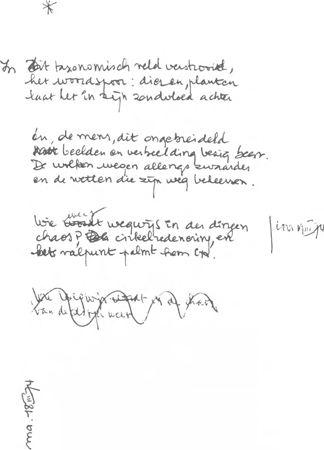 *
In dit taxonomisch veld verstrooid,
het woordspoor: dieren, planten
laat het in zijn zondvloed achter
én, de mens, dit ongebreideld
beelden en verbeelding bezig beer.
De wolken wegen allengs zwaarder
en de wetten die zijn weg beheersen.
Wie weet wegwijs in der dingen
chaos? cirkelredenering, en
het valpunt palmt hem in.
wie wegwijs wordt in de chaos
van de dingen weer